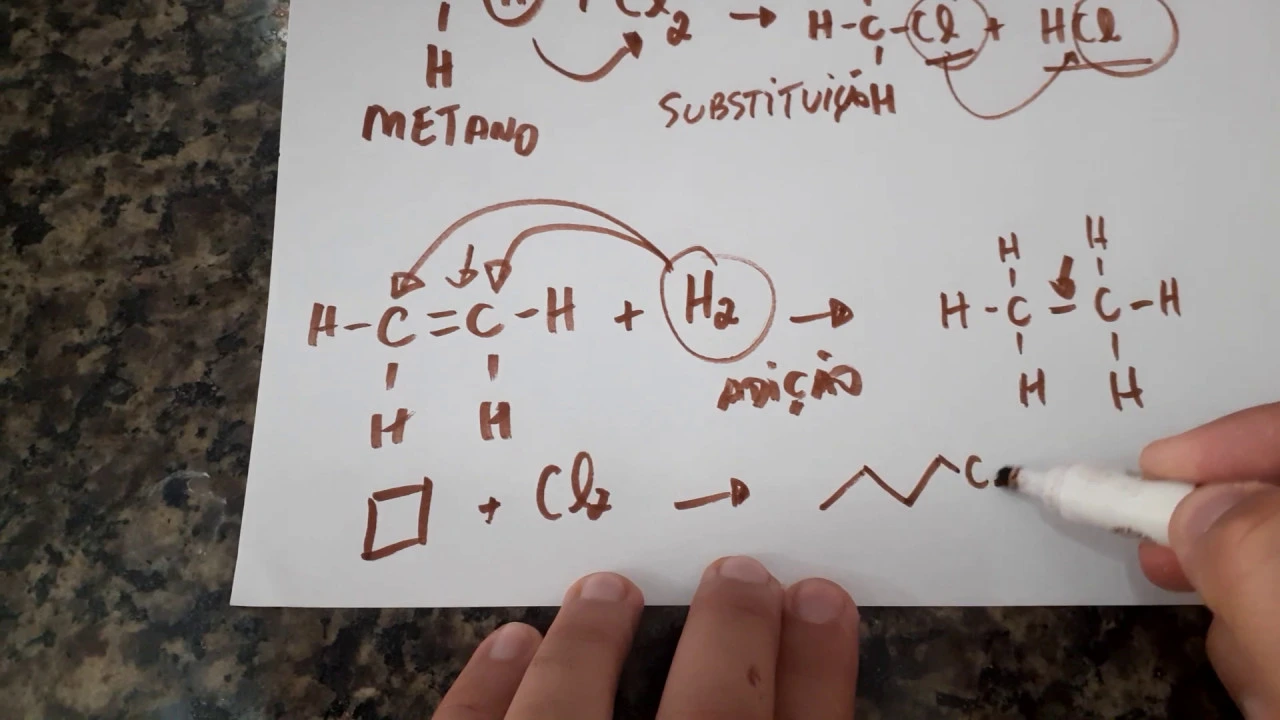 H Cl2 → H-C-Cl + HCl
H
METANO
SUBSTITUIÇÃO
H
H H
H-C=C-H + H2 → H-C-C-H
ADIÇÃO
H H H H
+ Cl2 → C